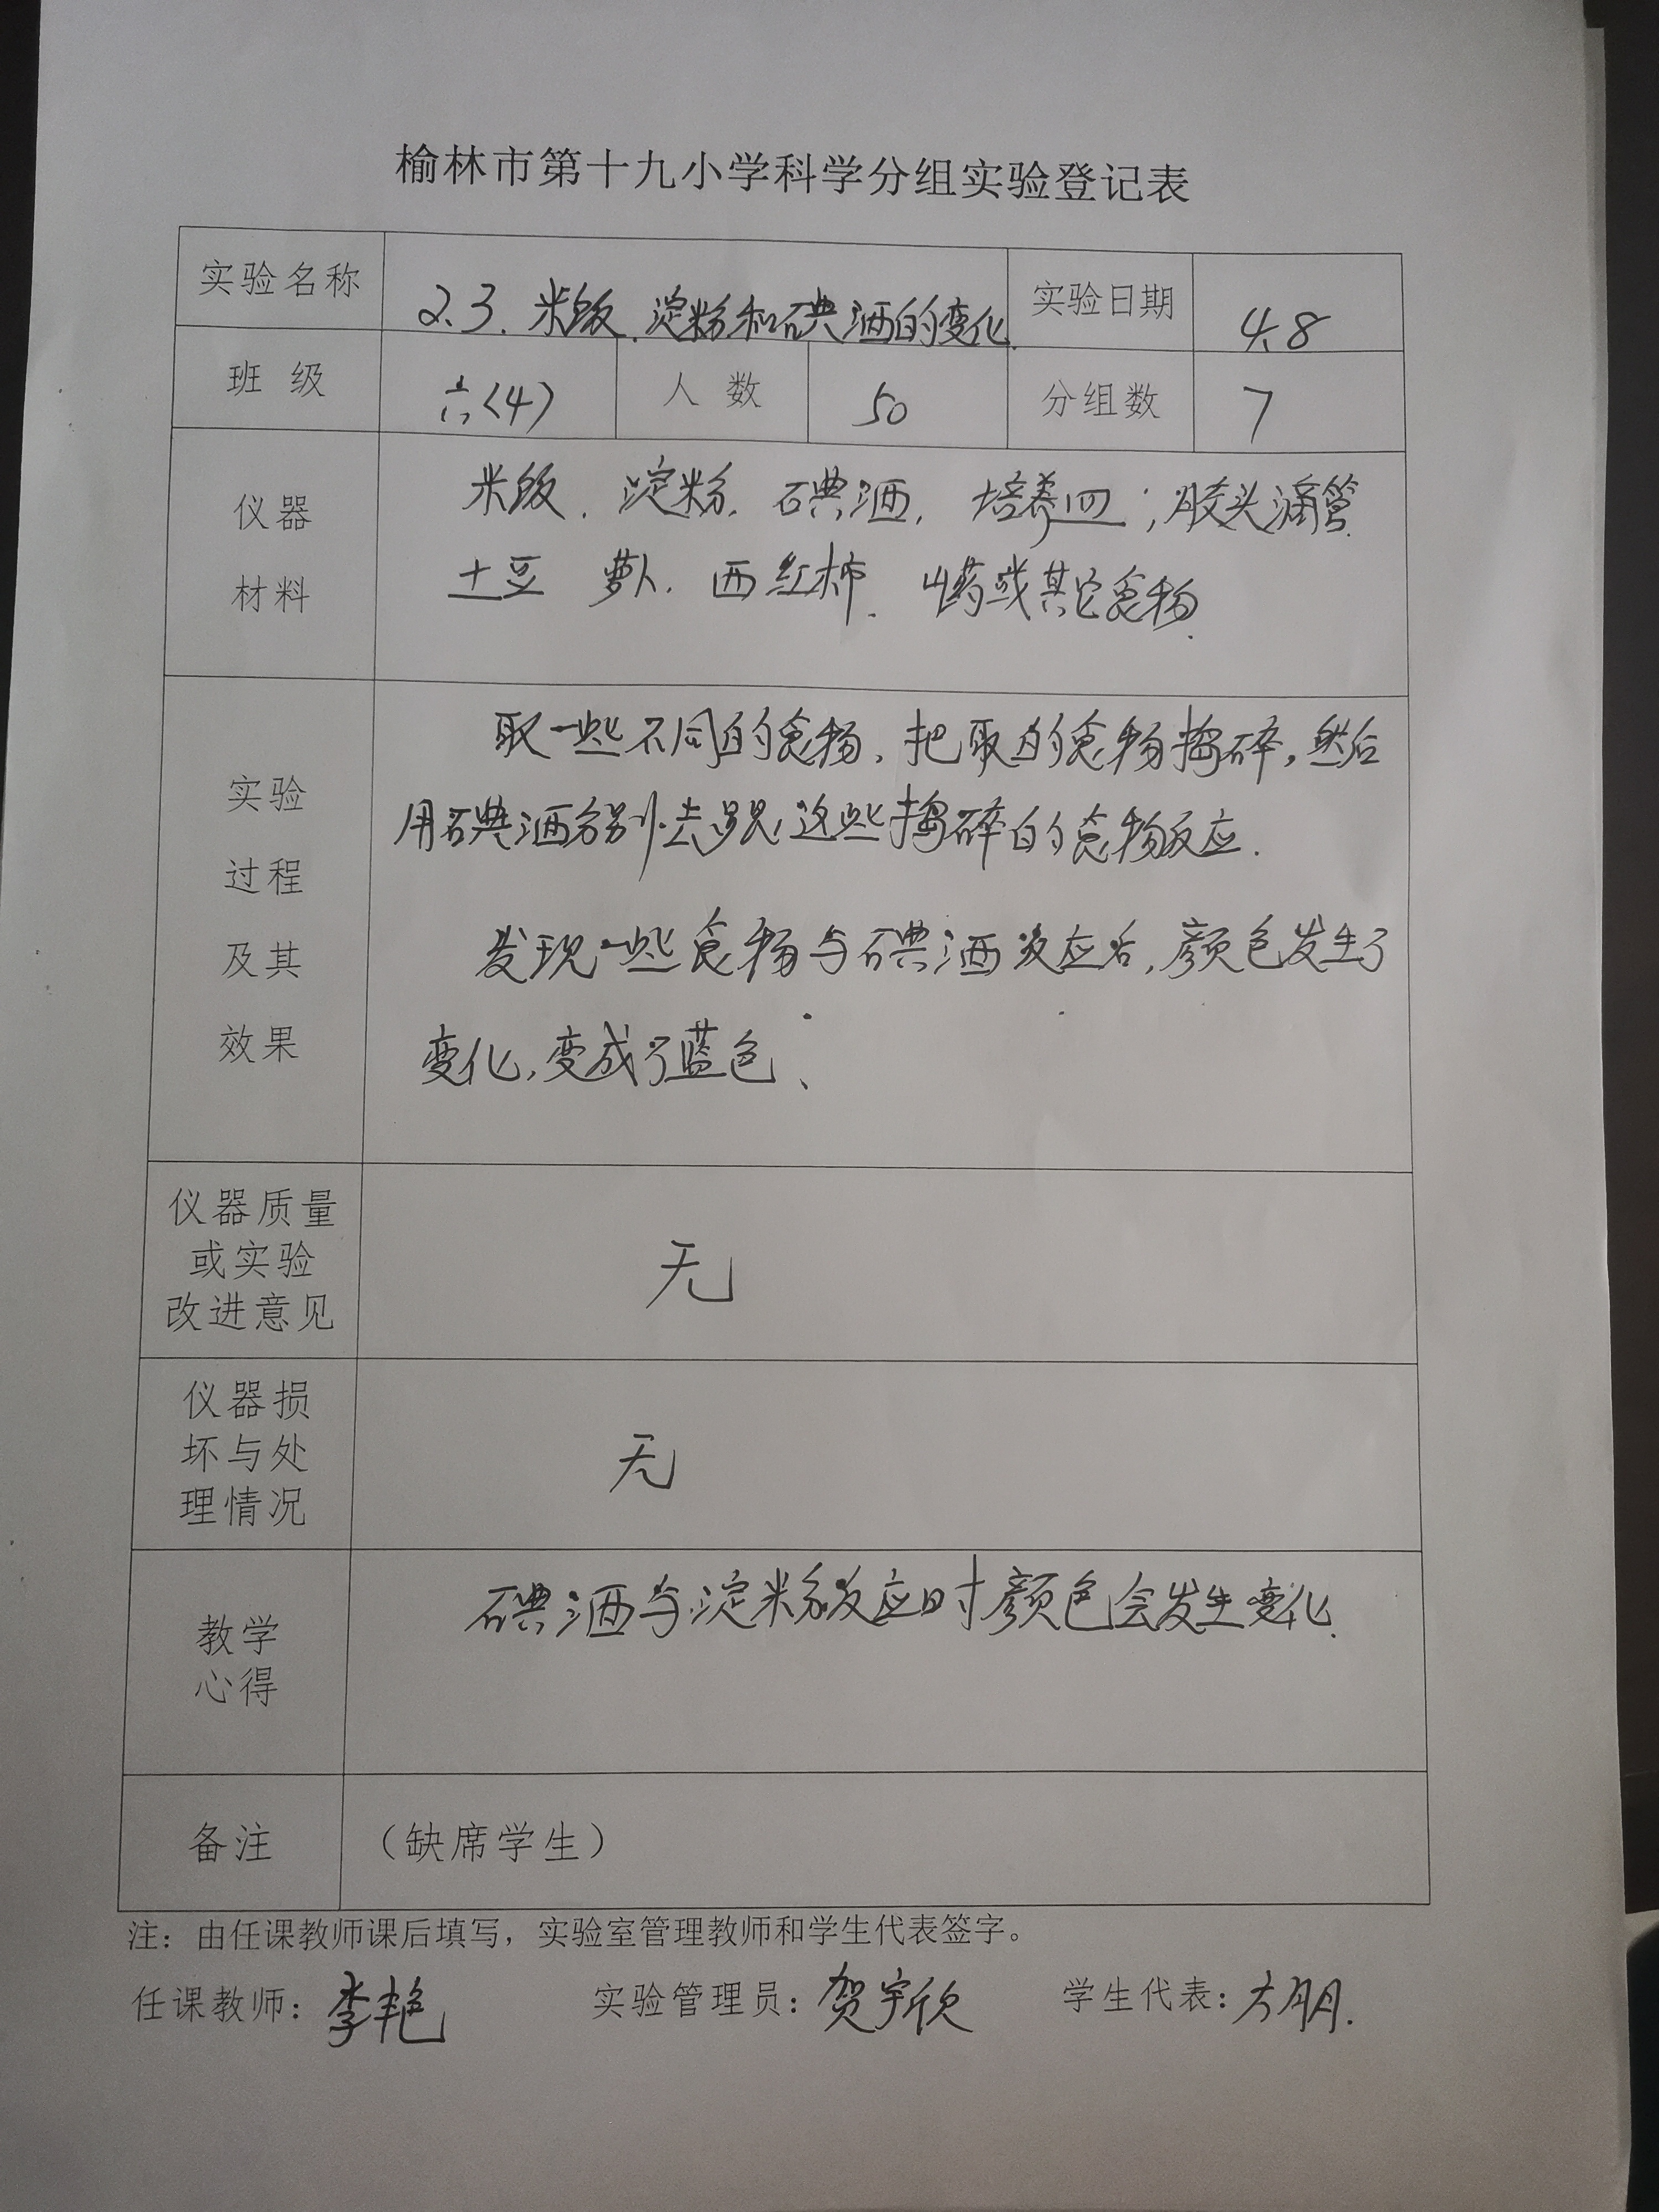 榆林市第十九小学科学分组实验登记表
实验名称 2.3.米饭.淀粉和碘酒的变化. 实验日期 4.8
班 级 六(4) 人 数 50 分组数 7
仪器
材料
米饭.淀粉.碘酒,培养皿;胶头滴管.
土豆 萝卜.西红柿.山药或其它食物.
实验
过程
及其
效果
取一些不同的食物、把取的食物捣碎,然后
用碘酒分别去跟这些捣碎的食物反应.
发现一些食物与碘酒反应后,颜色发生了
变化,变成了蓝色、
仪器质量
或实验
改进意见
无
仪器损
坏与处
理情况
无
教学
心得
碘酒与淀粉反应时颜色会发生变化.
备注 （缺席学生）
注：由任课教师课后填写，实验室管理教师和学生代表签字。
任课教师：李艳 实验管理员：贺宇欣 学生代表：